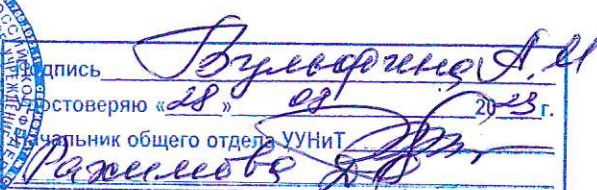 Подпись Вульфина А.М
Удостоверяю «28» 08 2023 г.
Начальник общего отдела УУНиТ
Рахимова